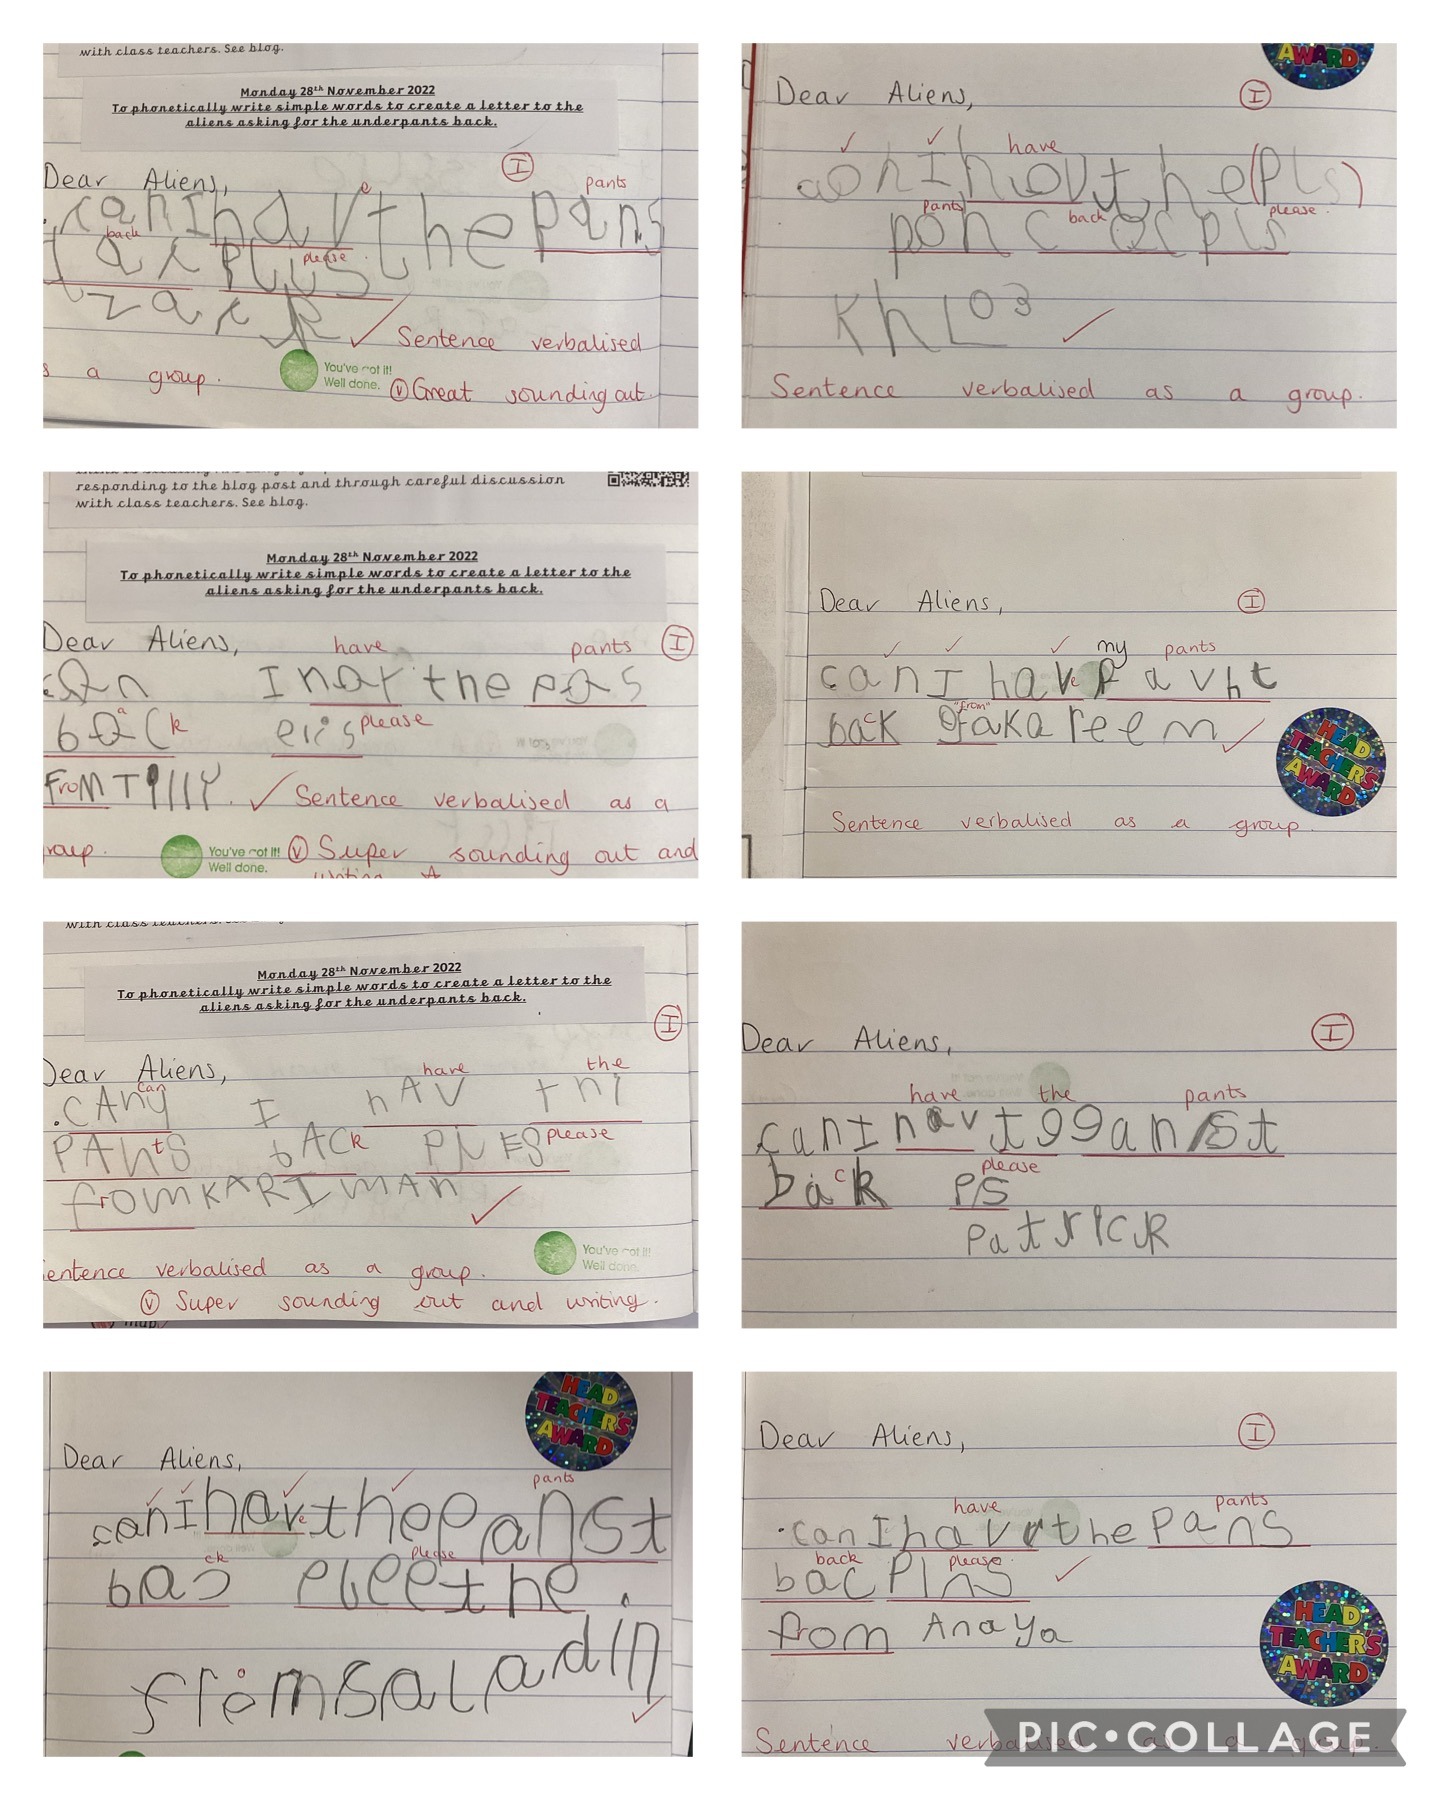 with class teachers. See blog.
Monday 28th November 2022
To phonetically write simple words to create a letter to the
aliens asking for the underpants back.
I
Dear Aliens,
e pants
canIhavthepans
back
please
✓ Sentence verbalised
s a group.
You've got it!
Well done.
V Great sounding out.
AWARD
Dear Aliens, I
✓ ✓ have
pants back please.
✓
Sentence verbalised as a group.
responding to the blog post and through careful discussion
with class teachers. See blog.
Monday 28th November 2022
To phonetically write simple words to create a letter to the
aliens asking for the underpants back.
Dear Aliens, have pants I
can I hav the pas
back please
FroM Tilly. ✓ Sentence verbalised as a
roup.
You've got it!
Well done.
V Super sounding out and
writing
Dear Aliens, I
✓ ✓ ✓ my pants
can I have
back "from" kareem ✓
HEAD
TEACHER'S
AWARD
Sentence verbalised as a group.
with class
Monday 28th November 2022
To phonetically write simple words to create a letter to the
aliens asking for the underpants back.
I
Dear Aliens, have the
can
.CANy I hAV thi
PAntS bACk PlES please
fromKARIMAN ✓
You've got it!
Well done.
entence verbalised as a group.
V Super sounding out and writing.
Dear Aliens, I
have the pants
canIhavtgganst
back pls please
patrick
HEAD
TEACHER'S
AWARD
Dear Aliens,
pants
canIhavethepanst
ck please
bac pleethe.
fromsaladin
✓
Dear Aliens, I
have pants
.canIhavthepans
back please.
bac plns ✓
from Anaya
HEAD
TEACHER'S
AWARD
Sentence verbalised as a group.
PIC•COLLAGE